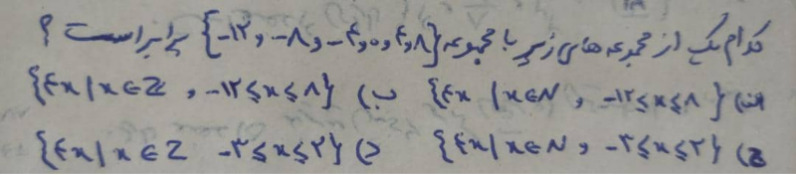 کدام یک از مجموعه های زیر با مجموعه {-۱۲, -۸, -۴, ۰, ۴, ۸} برابر است ؟
الف) {۴x | x∈N , -۱۲≤x≤۸} ب) {۴x | x∈Z , -۱۲≤x≤۸}
ج) {۴x | x∈N , -۳≤x≤۲} د) {۴x | x∈Z -۳≤x≤۲}